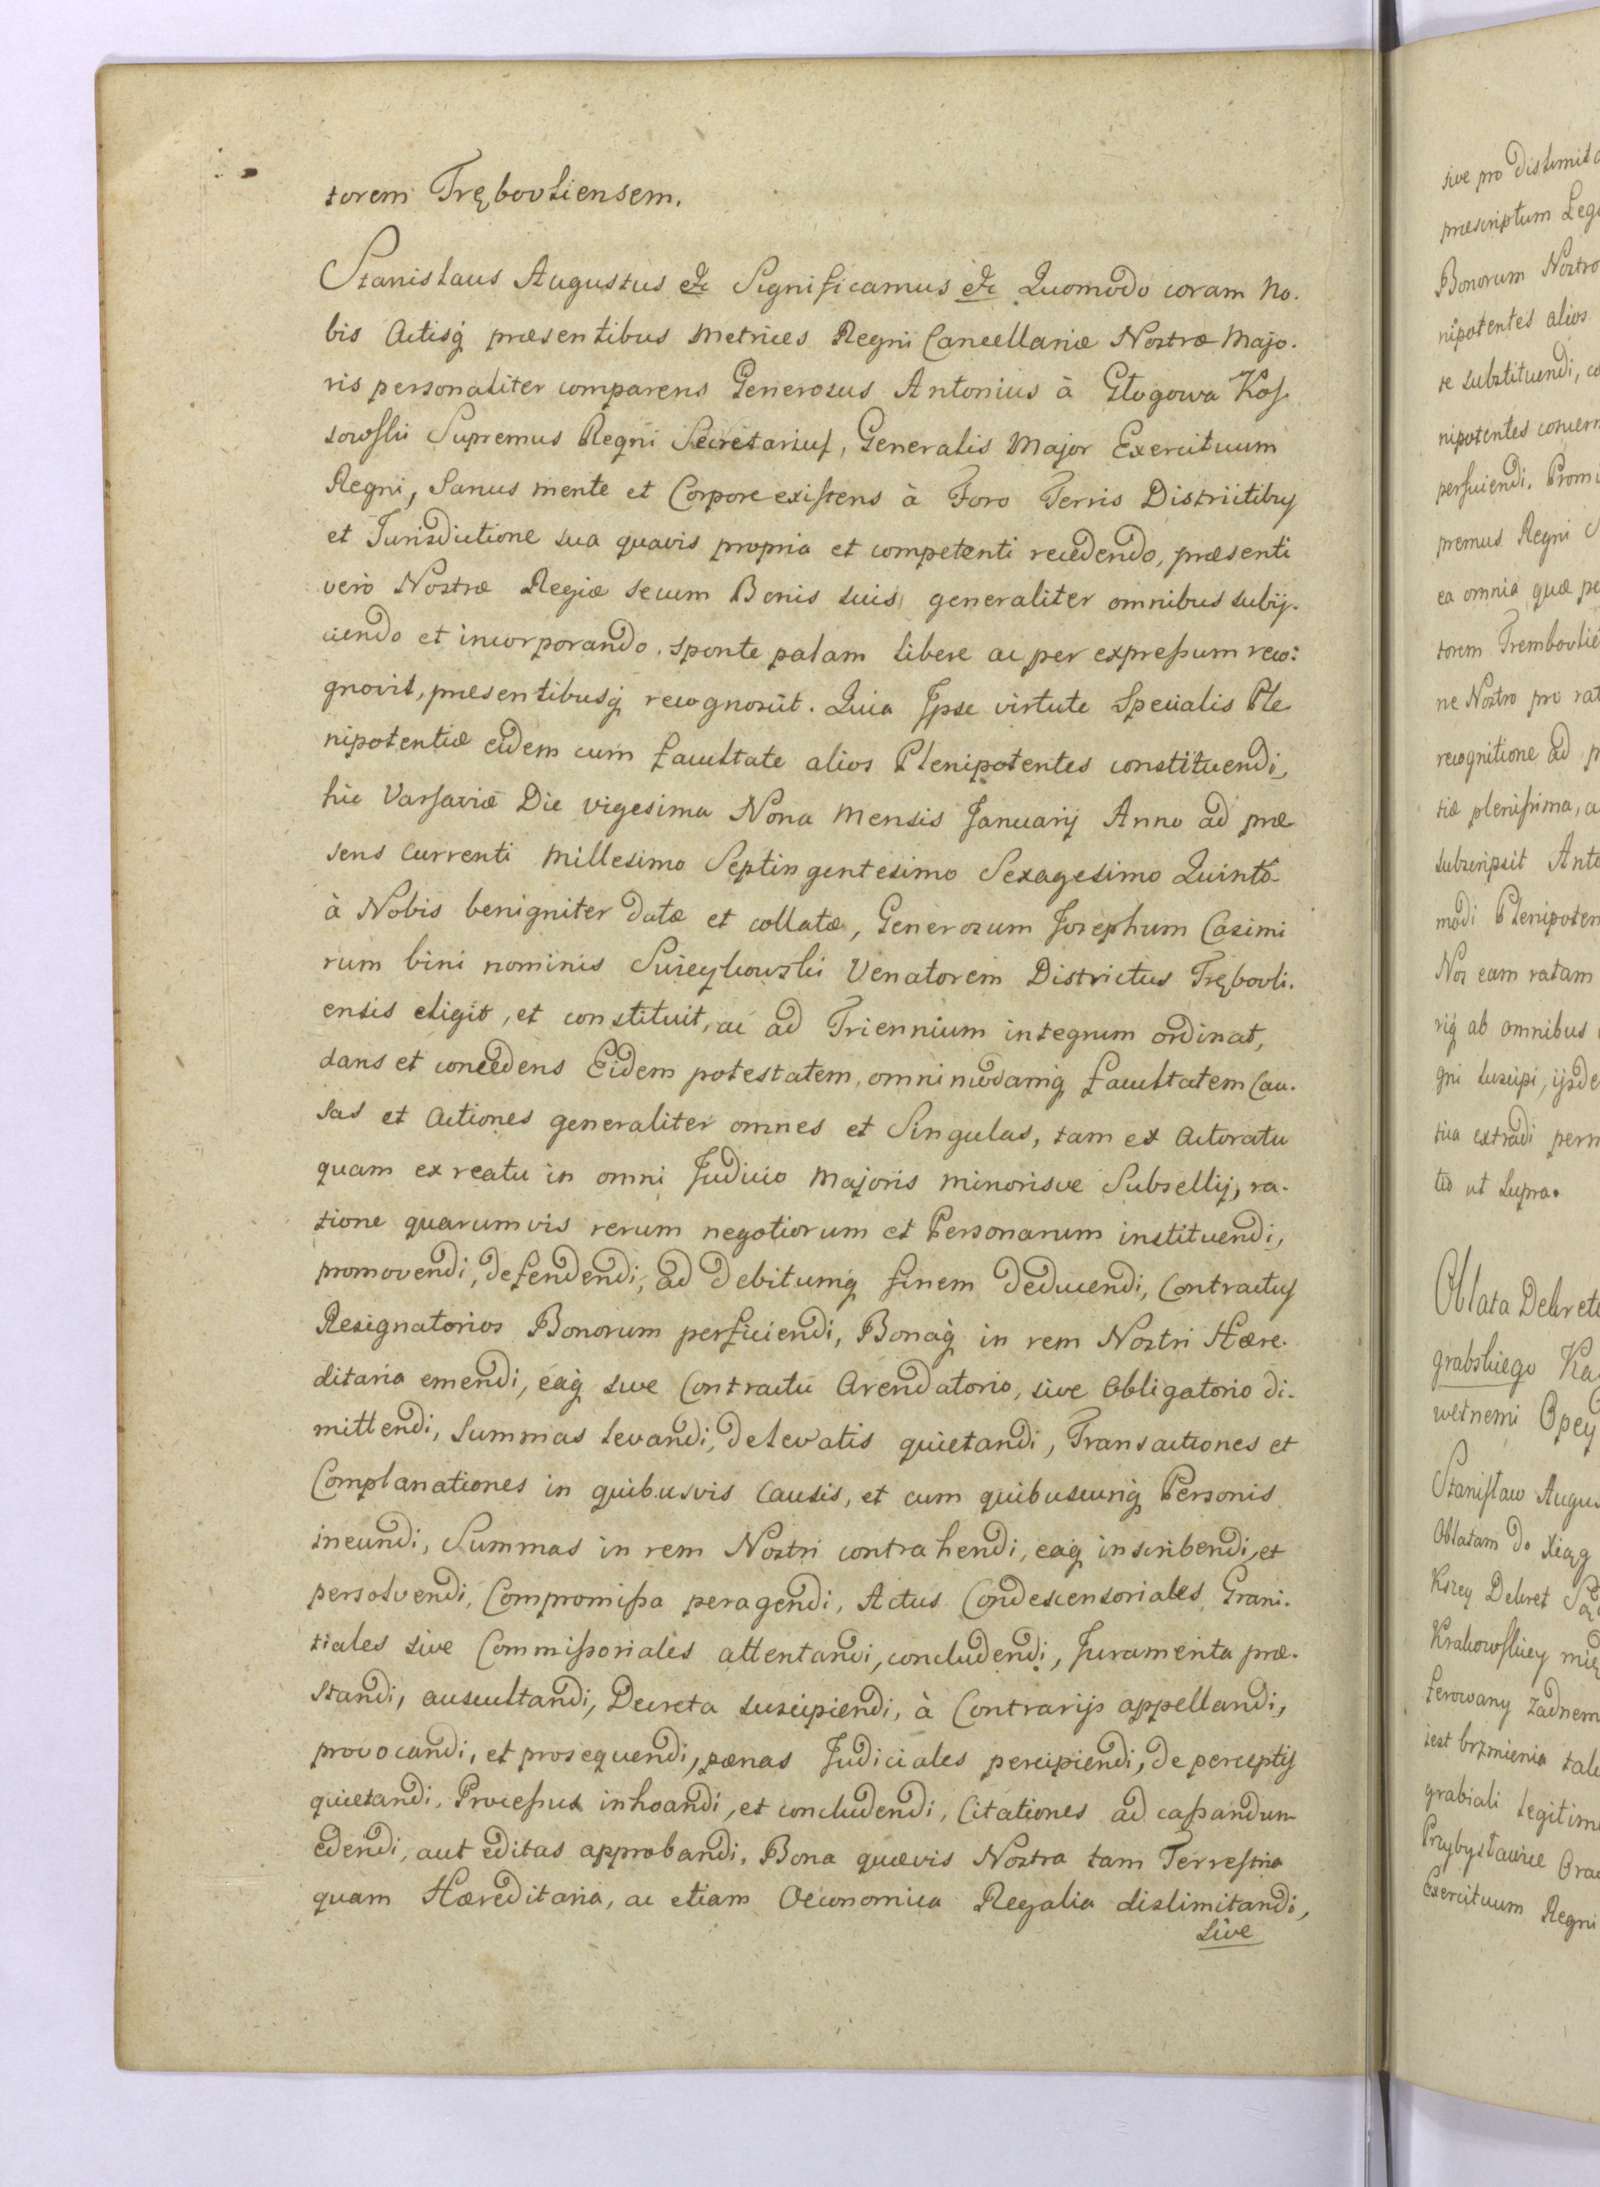 torem Trębovliensem.
Stanislaus Augustus etc Significamus etc Quomodo coram No.
bis Actisq́ præsentibus Metrices Regni Cancellariæ Nostræ Majo.
ris personaliter comparens Generosus Antonius à Głogowa Kos.
sowski Supremus Regni Secretarius, Generalis Major Exercituum
Regni, Sanus mente et Corpore existens à Foro Terris Districtibus
et Jurisdictione sua quavis propria et competenti recedendo, præsenti
verò Nostræ Regiæ secum Bonis suis generaliter omnibus subij.
ciendo et incorporando, sponte palam libere ac per expressum reco:
gnovit, præsentibusq́ recognoscit. Quia Ipse virtute Specialis Ple
nipotentiæ eidem cum facultate alios Plenipotentes constituendi,
hic Varsaviæ Die vigesima Nona Mensis Januarij Anno ad præ
sens currenti Millesimo Septingentesimo Sexagesimo Quinto
à Nobis benigniter datæ et collatæ, Generosum Josephum Casimi
rum bini nominis Swieykowski Venatorem Districtus Trębovli.
ensis eligit, et constituit, ac ad Triennium integrum ordinat,
dans et concedens Eidem potestatem, omnimodamq́ facultatem Cau.
sas et Actiones generaliter omnes et Singulas, tam ex Actoratu
quam ex reatu in omni Judicio Majoris Minorisve Subsellij, ra.
tione quarumvis rerum negotiorum et Personarum instituendi,
promovendi, defendendi, ad debitumq́ finem deducendi, Contractus
Resignatorios Bonorum perficiendi, Bonaq́ in rem Nostri Hære.
ditaria emendi, eaq́ sive Contractu Arendatorio, sive Obligatorio di.
mittendi, Summas levandi, de levatis quietandi, Transactiones et
Complanationes in quibusvis Causis, et cum quibuscunq́ Personis
ineundi, Summas in rem Nostri contrahendi, eaq́ inscribendi, et
persolvendi, Compromissa peragendi, Actus Condescensoriales Grani.
tiales sive Commissoriales attentandi, concludendi, Juramenta præ.
standi, auscultandi, Decreta suscipiendi, à Contrarijs appellandi,
provocandi, et prosequendi, pænas Judiciales percipiendi, de perceptis
quietandi, Processus inhoandi, et concludendi, Citationes ad cassandum
edendi, aut editas approbandi, Bona quævis Nostra tam Terrestria
quam Hæreditaria, ac etiam Oeconomica Regalia dislimitandi,
sive
sive pro
præscriptum
Bonorum
nipotentes alios
re substituendi,
nipotentes
perficiendi.
premus Regni
ea omnia quæ
torem
ne Nostro pro
recognitione ad
tiæ plenissima,
subscripsit
modi
Nos eam ratam
riq́ ab omnibus
gni suscipi,
extradi
ut supra.
Oblata
grabskiego
Stanisław
Oblatam do Xiąg
Dekret
Krakowskiey
żadnem
iest brzmienia
grabiali
Exercituum Regni